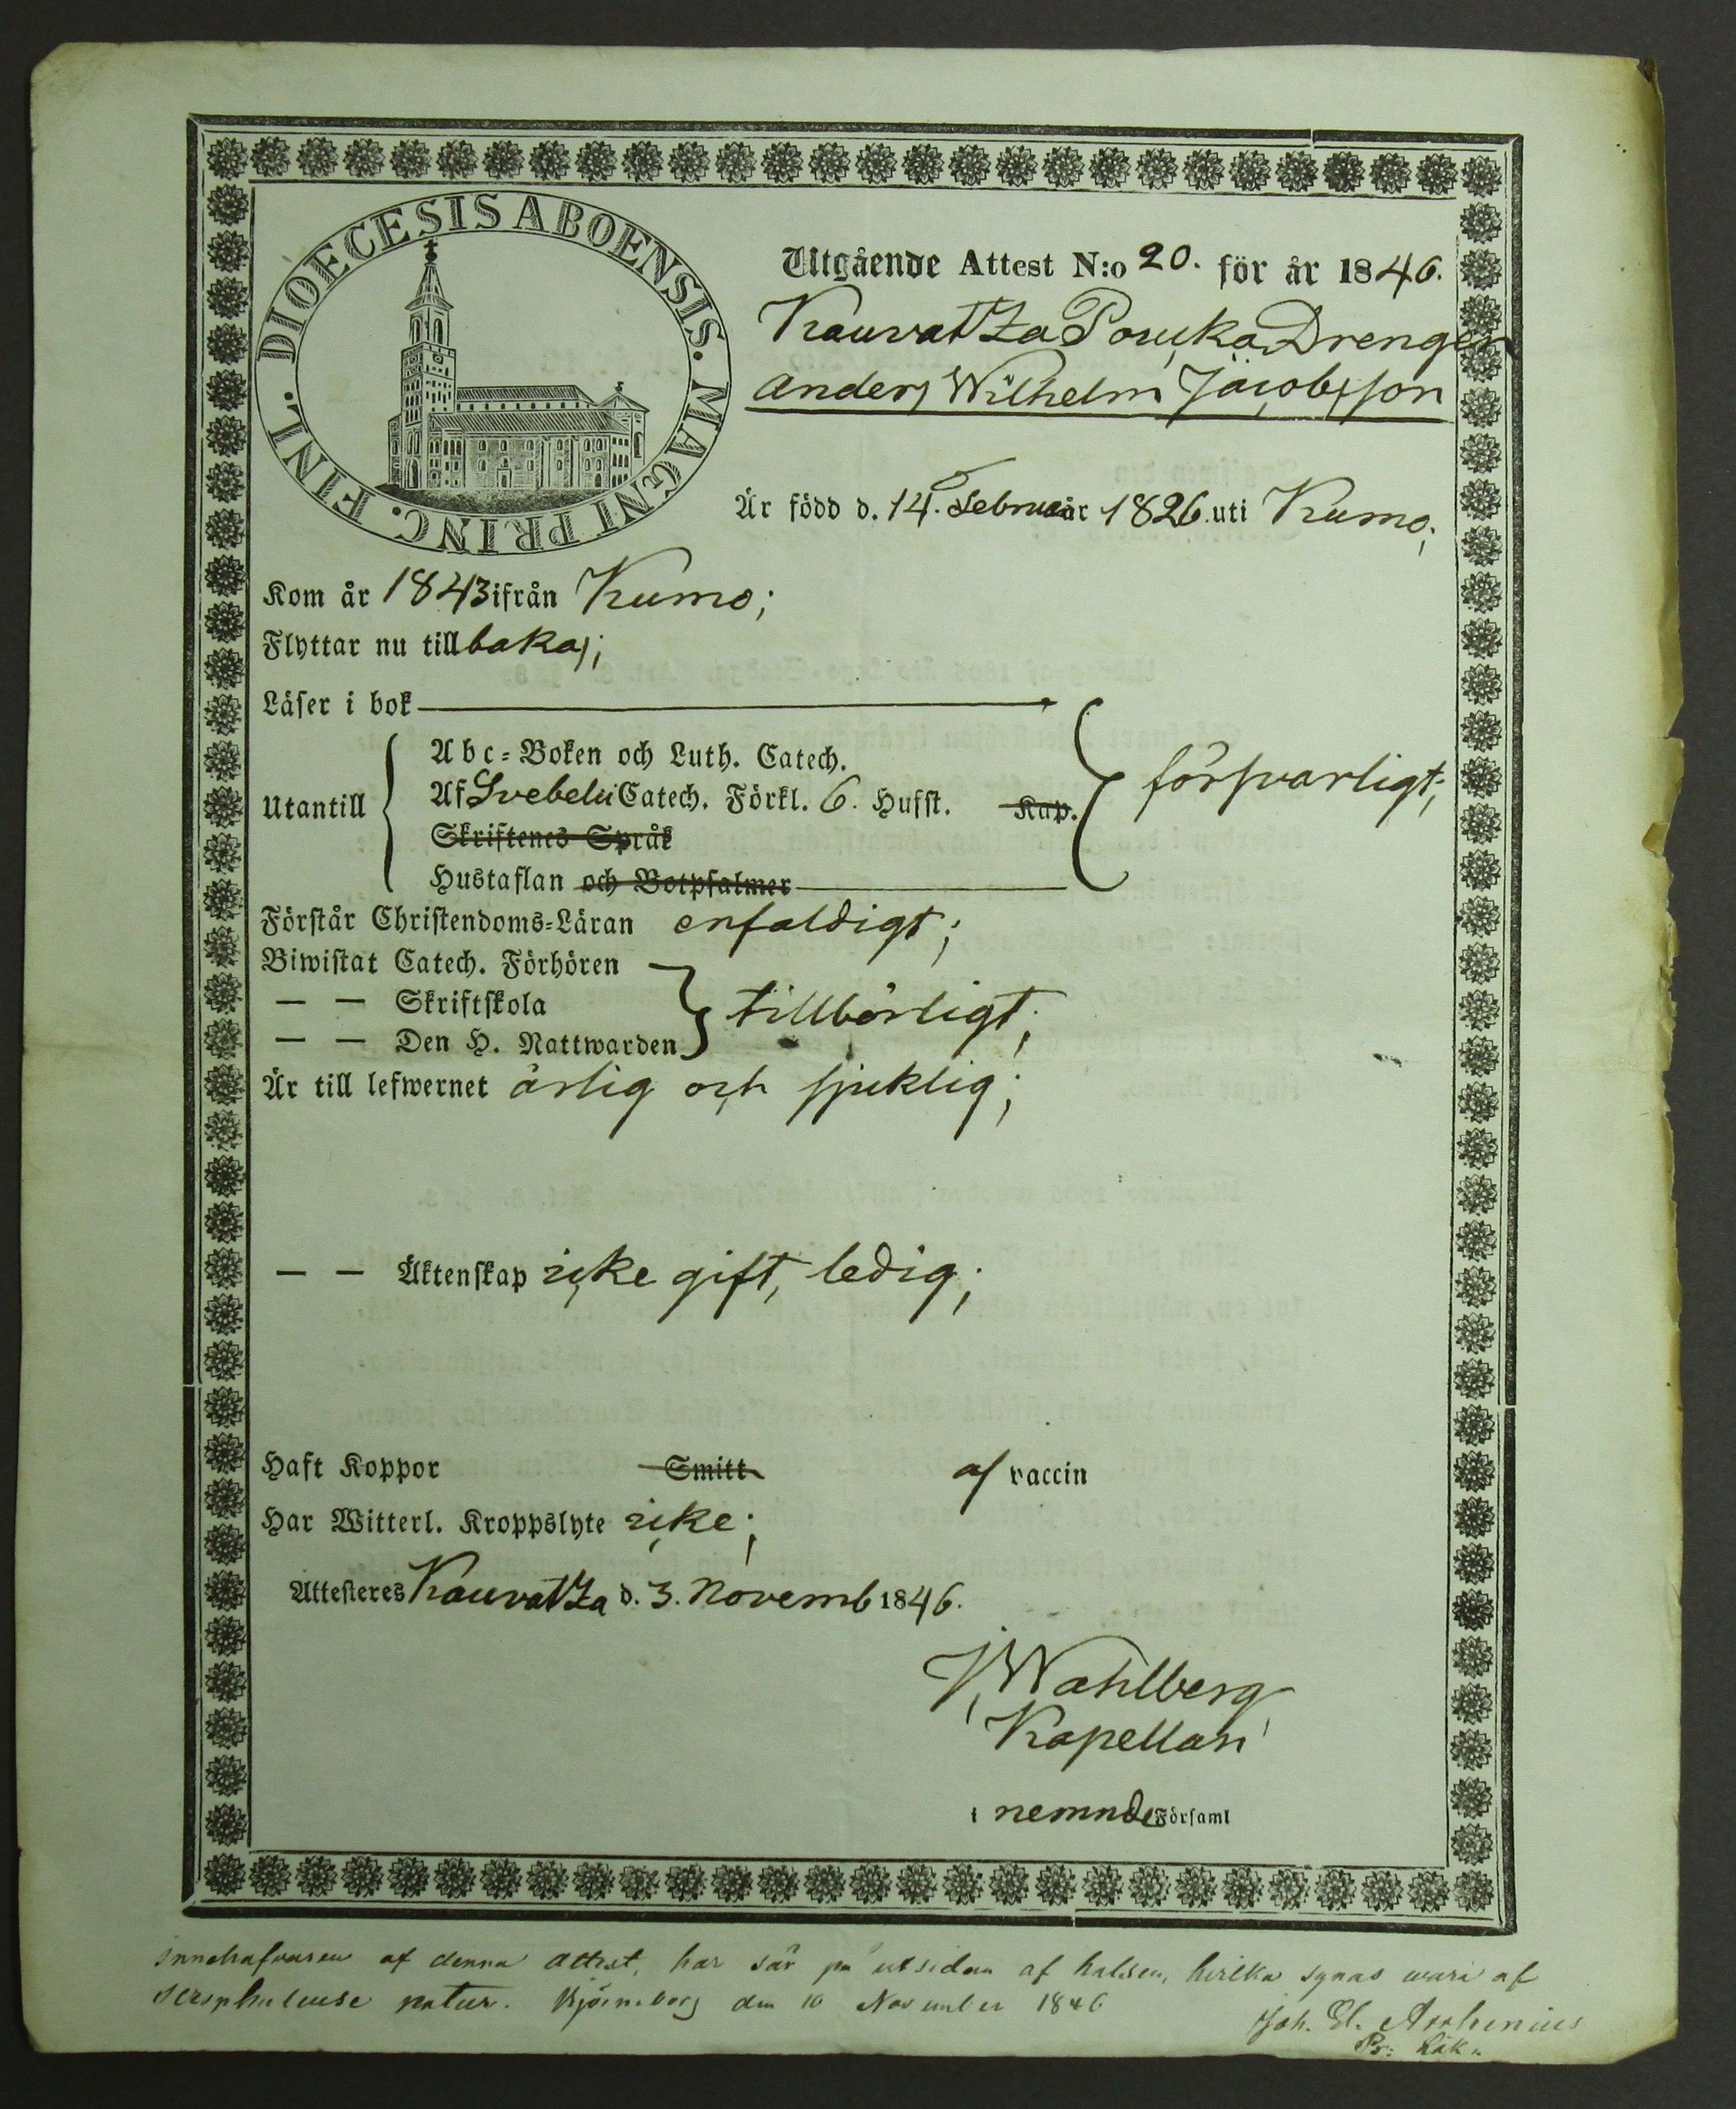 DIOECESIS ABOENSIS. MAGNI PRINC. FINL.
Utgående Attest N:o 20. för år 1846.
Kauvatza Drengen
Anders Wilhelm Jacobsson
Är född d. 14. Februar 1826. uti Kumo;
Kom år 1843 ifrån Kumo;
Flyttar nu till baka;
Läser i bok
Abc=Boken och Luth. Catech.
Utantill Af Svebelii Catech. Förkl. 6. Hufst. Kap. försvarligt;
Skriftenes Språk
Hustaflan och Botpsalmer
Förstår Christendoms=Läran enfaldigt;
Biwistat Catech. Förhören
— — Skriftskola tillbörligt;
— — Den H. Nattwarden
Är till lefwernet ärlig och sjuklig;
— — Äktenskap icke gift, ledig;
Haft Koppor Smitt af vaccin
Har Witterl. Kroppslyte icke;
Attesteres Kauvatza d. 3. Novemb 1846.
J. Wahlberg
Kapellan
i nemnde Församl
Innehafvaren af denna attest, har sår på utsidan af halsen, hvilka synas wara af
scrophuleuse natur. Björneborg den 10 November 1846
Joh. El. Arrhenius
Pr: Läk: